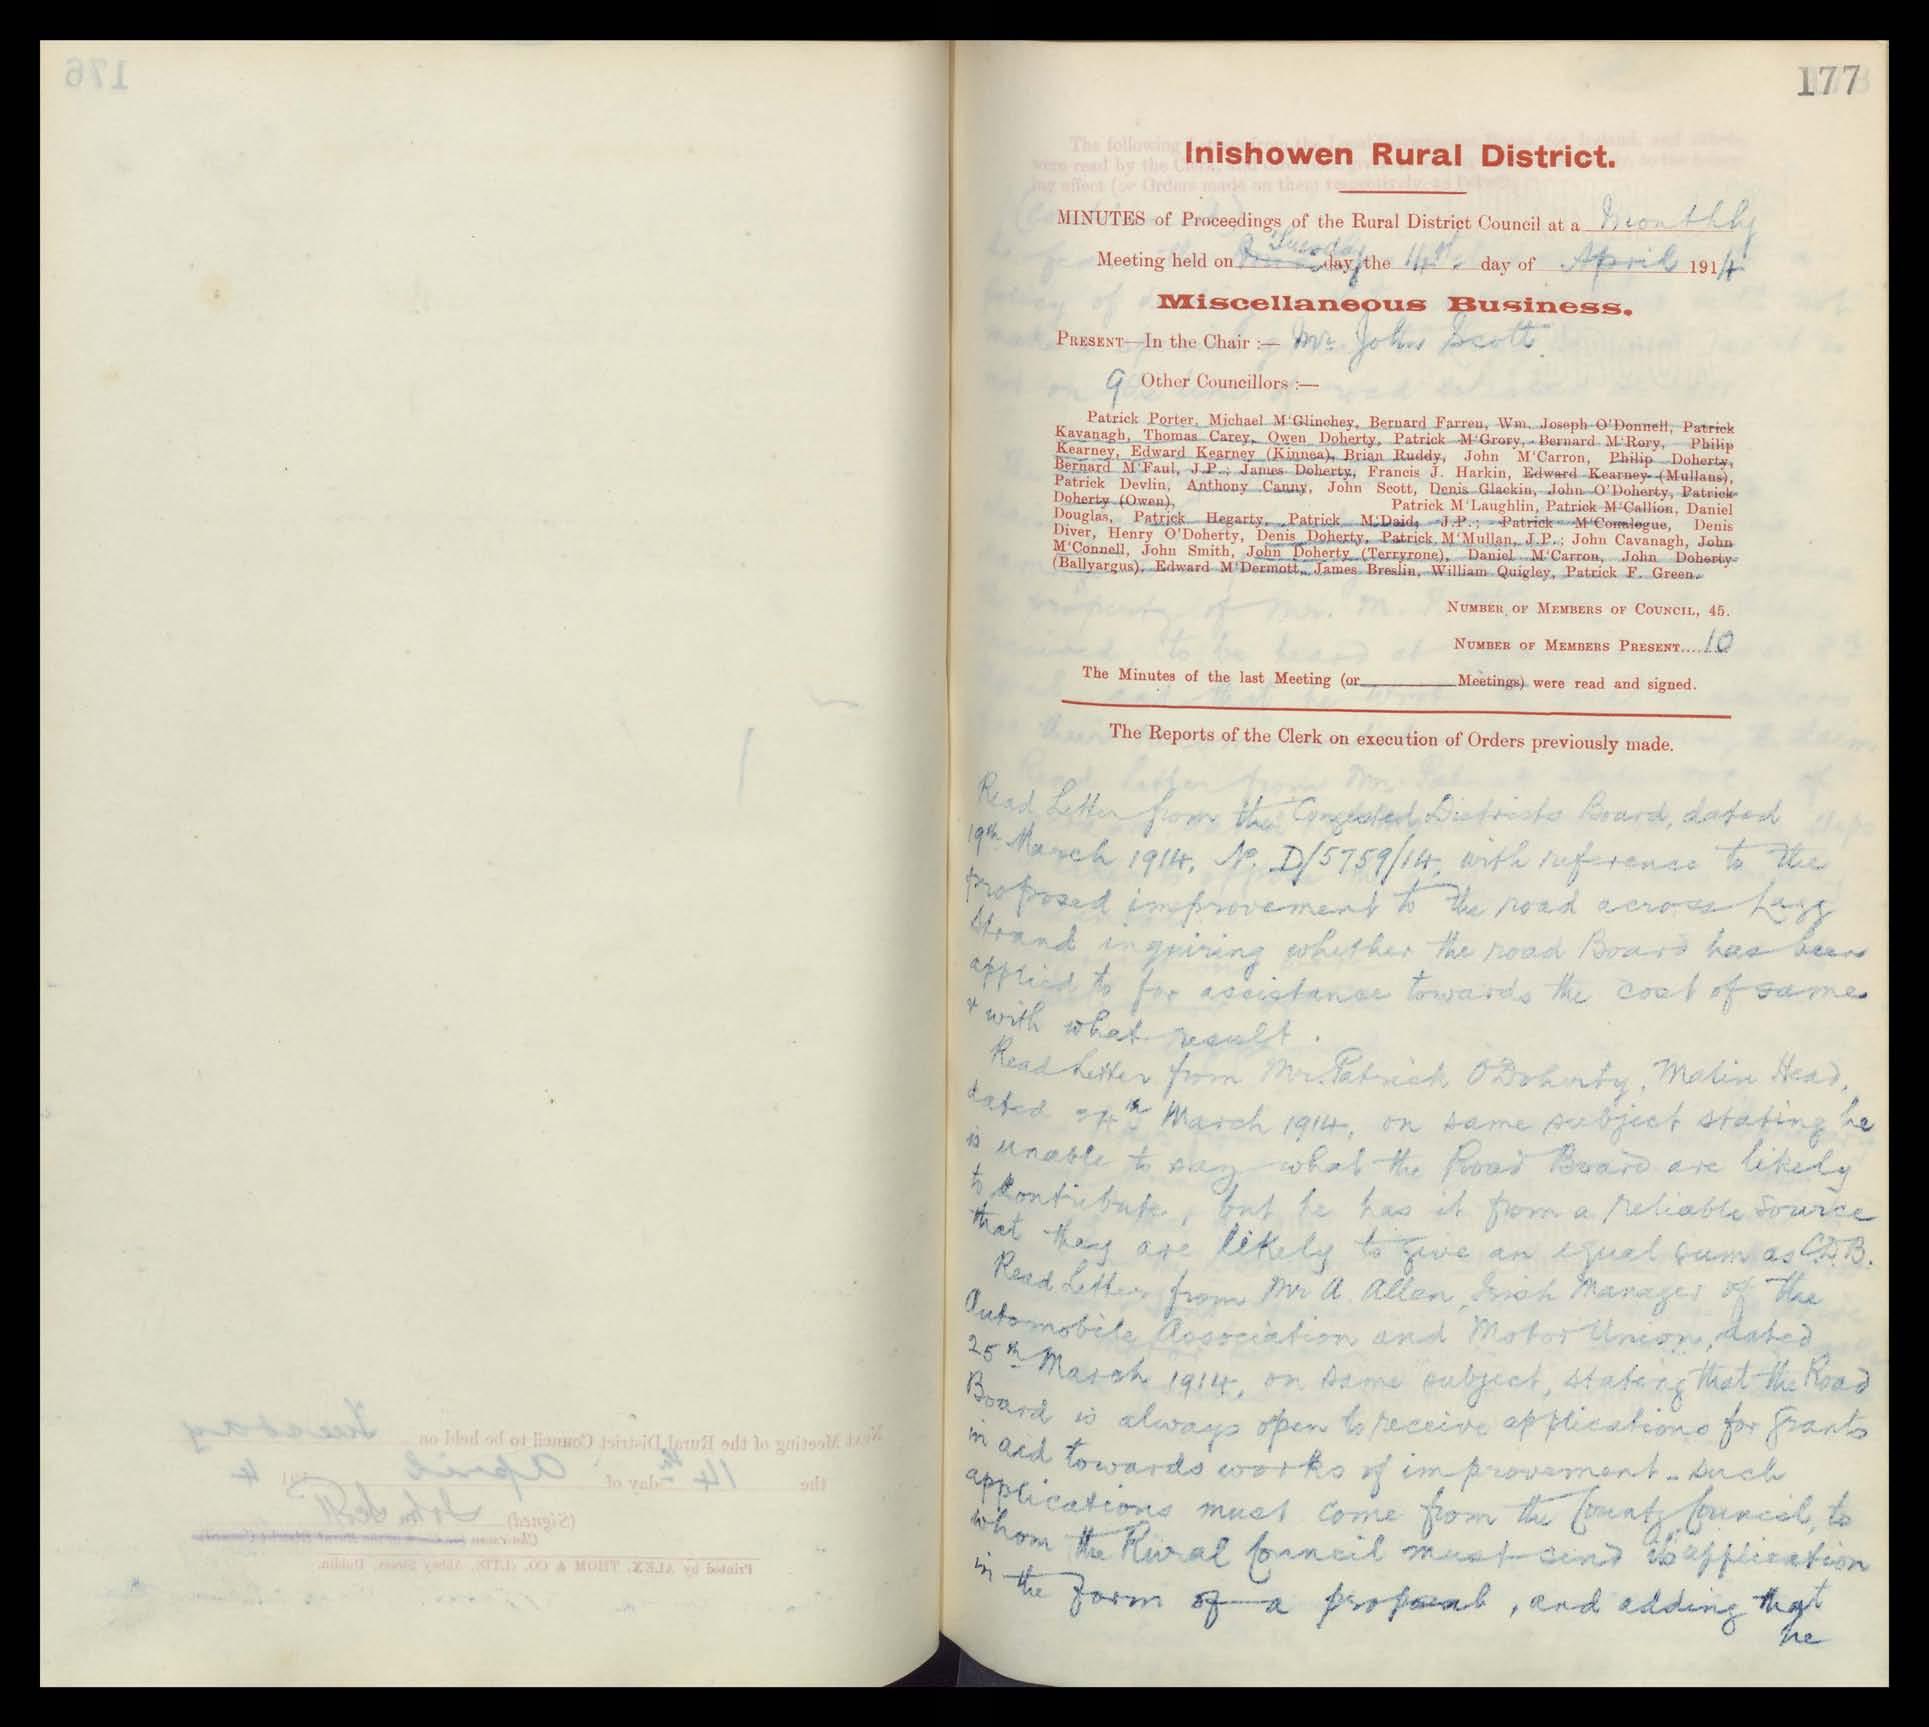 176
Next Meeting of the Rural District Council to be held on Tuesday
the 14th day of April 191 4
(Signed) John Scott
Printed by ALEX. THOM & CO. (LTD., Abbey Street, Dublin.
177
Inishowen Rural District.
MINUTES of Proceedings of the Rural District Council at a Monthly
Tuesday
Meeting held on day, the 14th day of April 1914
Miscellaneous Business.
PRESENT—In the Chair :— Mr. John Scott.
9 Other Councillors :—
Patrick Porter, Michael M'Glinchey, Bernard Farren, Wm. Joseph O'Donnell, Patrick
Kavanagh, Thomas Carey, Owen Doherty, Patrick M'Grory, Bernard M'Rory, Philip
Kearney, Edward Kearney (Kinnea), Brian Ruddy, John M'Carron, Philip Doherty,
Bernard M'Faul, J.P.; James Doherty, Francis J. Harkin, Edward Kearney (Mullans),
Patrick Devlin, Anthony Canny, John Scott, Denis Glackin, John O'Doherty, Patrick
Doherty (Owen), Patrick M'Laughlin, Patrick M'Callion, Daniel
Douglas, Patrick Hegarty, Patrick M'Daid, J.P.; Patrick M'Conalogue, Denis
Diver, Henry O'Doherty, Denis Doherty, Patrick M'Mullan, J.P.; John Cavanagh, John
M'Connell, John Smith, John Doherty (Terryrone), Daniel M'Carron, John Doherty
(Ballyargus), Edward M'Dermott, James Breslin, William Quigley, Patrick F. Green.
NUMBER OF MEMBERS OF COUNCIL, 45.
NUMBER OF MEMBERS PRESENT....10
The Minutes of the last Meeting (or Meetings) were read and signed.
The Reports of the Clerk on execution of Orders previously made.
Read Letter from the Congested Districts Board, dated
19th March 1914, No. D/5759/14, with reference to the
proposed improvement to the road across Lagg
Strand inquiring whether the road Board has been
applied to for assistance towards the cost of same
& with what result.
Read Letter from Mr. Patrick O'Doherty, Malin Head,
dated 24th March 1914, on same subject stating he
is unable to say what the Road Board are likely
to contribute, but he has it from a reliable source
that they are likely to give an equal sum as C.D.B.
Read Letter from Mr A. Allen, Irish Manager of the
Automobile Association and Motor Union, dated
25th March 1914, on same subject, stating that the Road
Board is always open to receive applications for grants
in aid towards works of improvement - such
applications must come from the County Council, to
whom the Rural Council must send its application
in the form of a proposal, and adding that
he